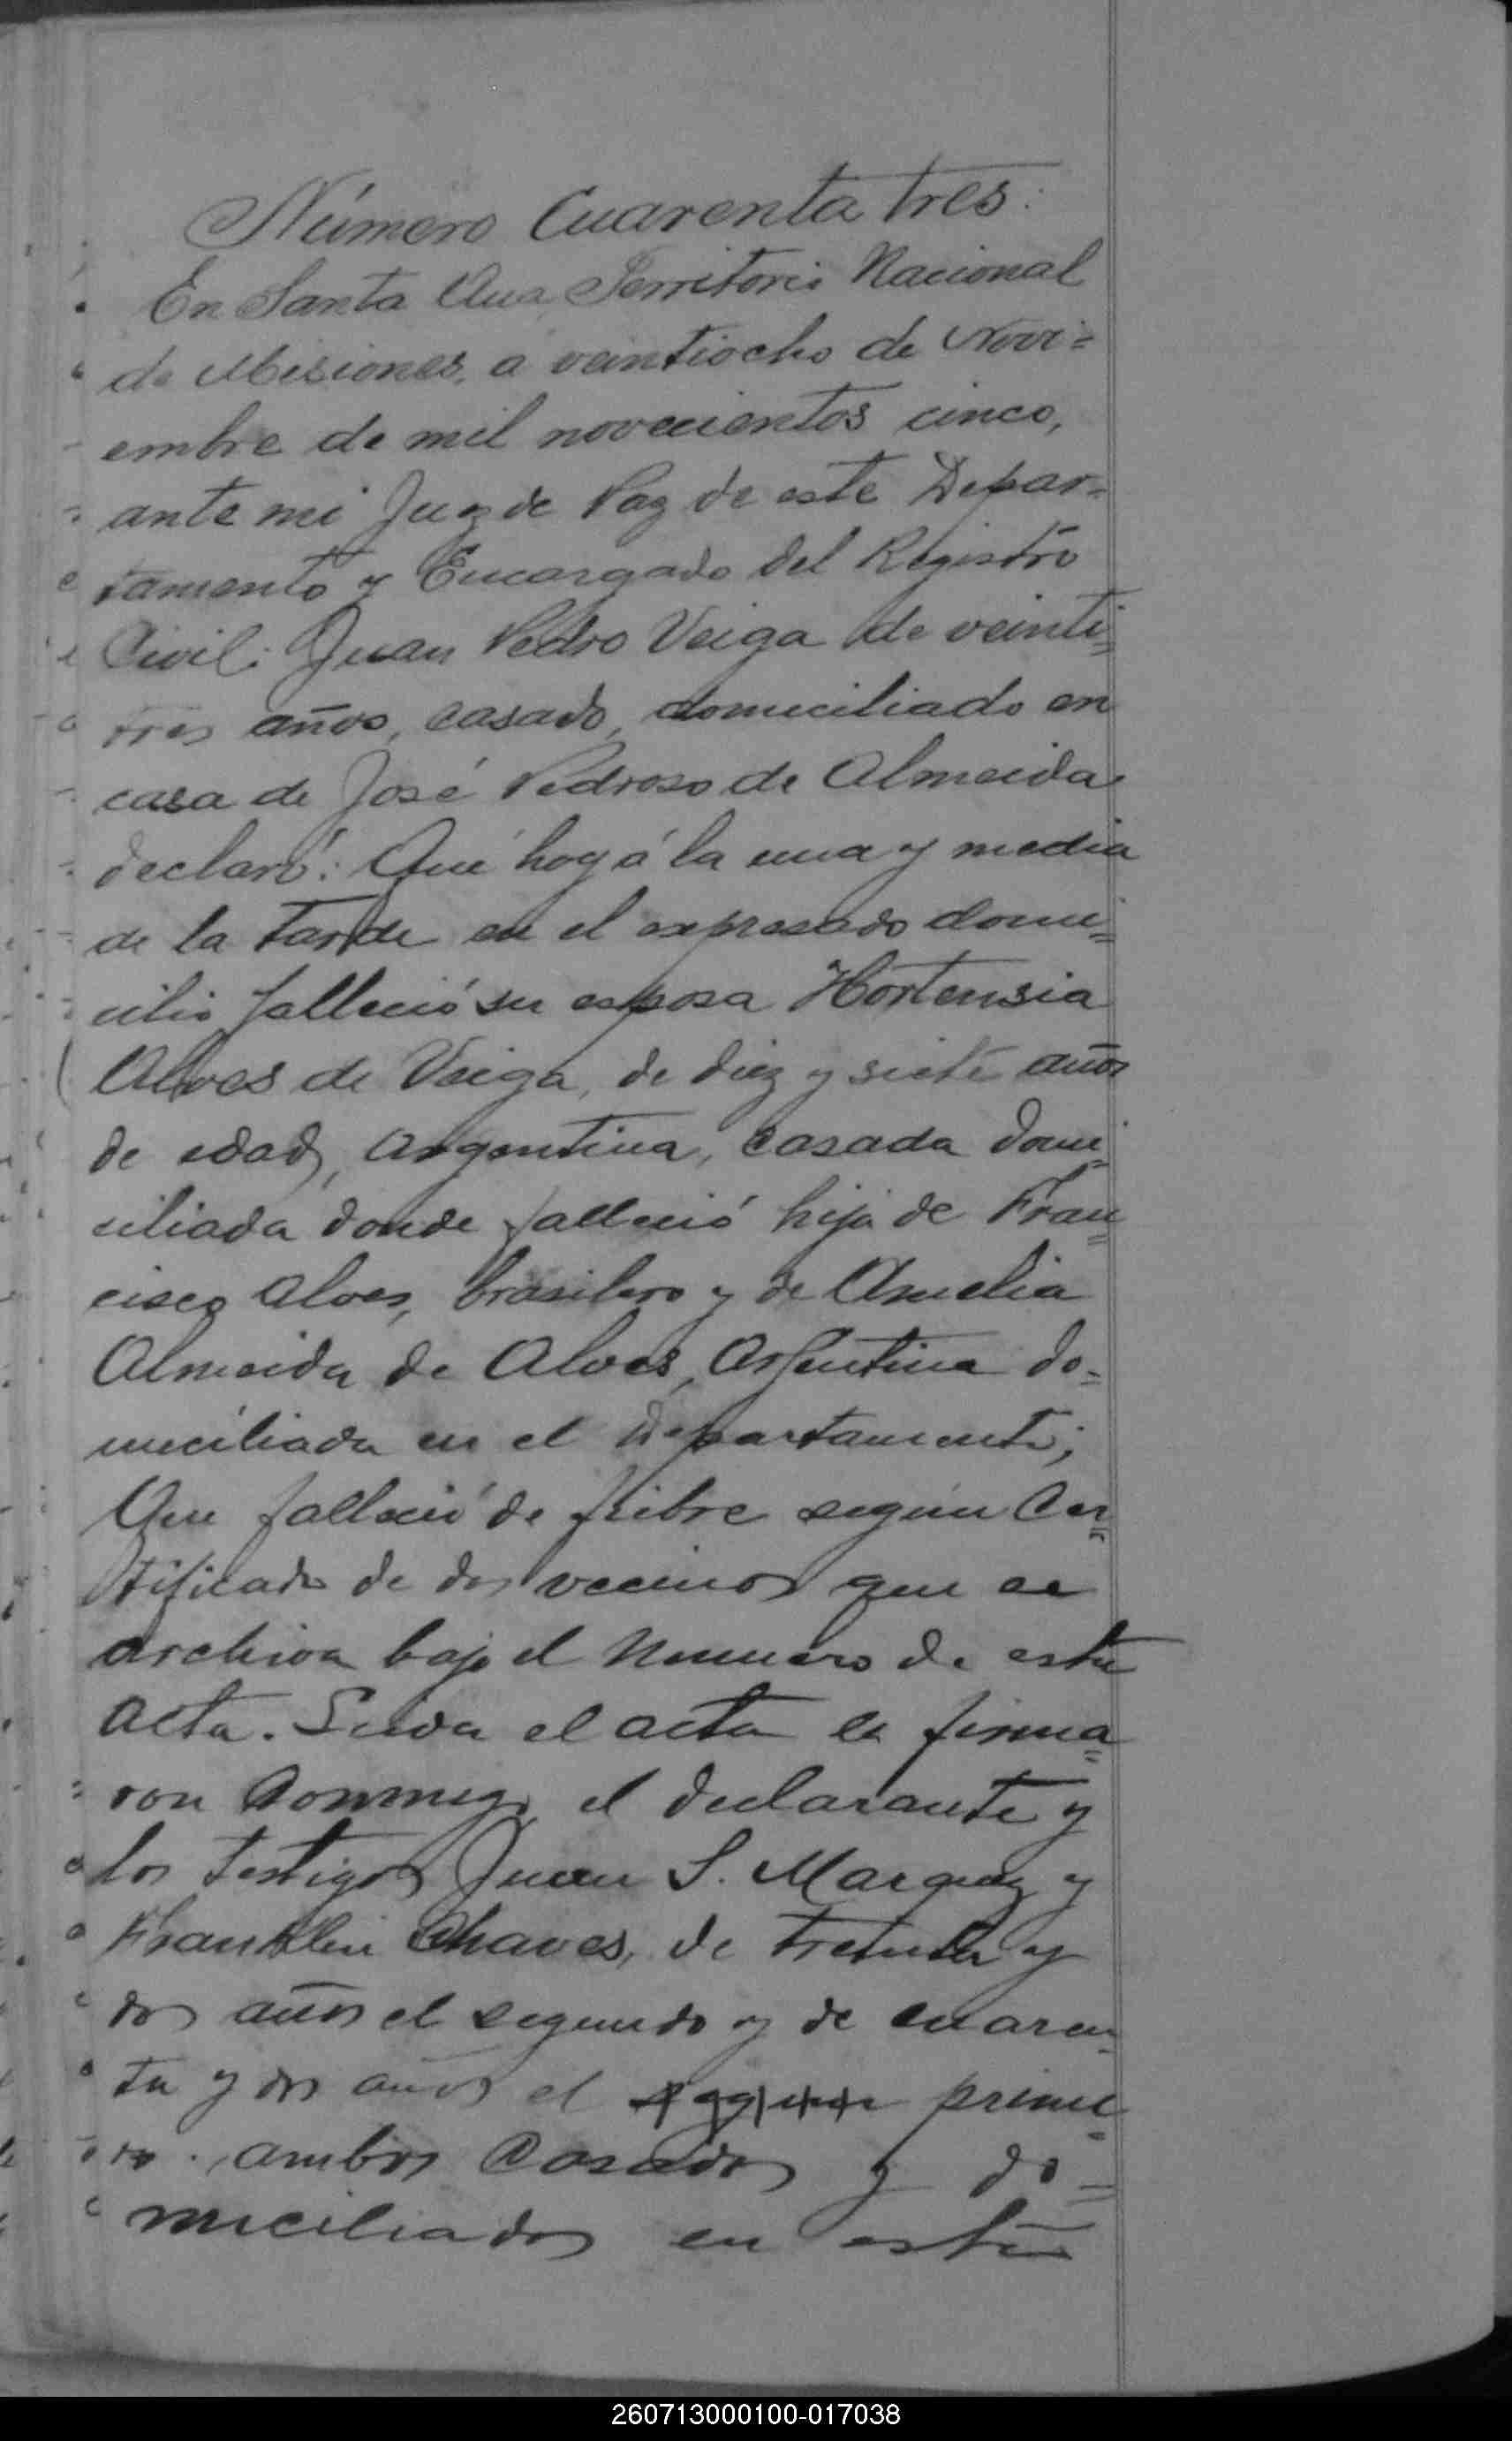 Número Cuarenta tres:
En Santa Ana Territorio Nacional
de Misiones, a veintiocho de Novi=
embre de mil novecientos cinco,
ante mi Juez de Paz de este Depar=
tamento y Encargado del Registro
Civil: Juan Pedro Veiga de veinti=
tres años, casado, domiciliado en
casa de José Pedroso de Almeida
declaró: Que hoy á la una y media
de la tarde en el expresado domi=
cilio falleció su esposa Hortensia
Alves de Veiga, de diez y siete años
de edad, argentina, casada domi=
ciliada donde falleció hija de Fran=
cisco Alves, brasilero y de Amelia
Almeida de Alves, Argentina do=
miciliada en el Departamento;
Que falleció de fiebre según Cer=
tificado de dos vecinos que se
archiva bajo el Numero de esta
acta. Leida el acta la firma=
ron conmigo el declarante y
los testigos Juan S. Marquez y
Franklin Chaves, de treinta y
dos años el segundo y de cuaren=
ta y dos años el prime=
ro. ambos casados y do=
miciliados en este
260713000100-017038